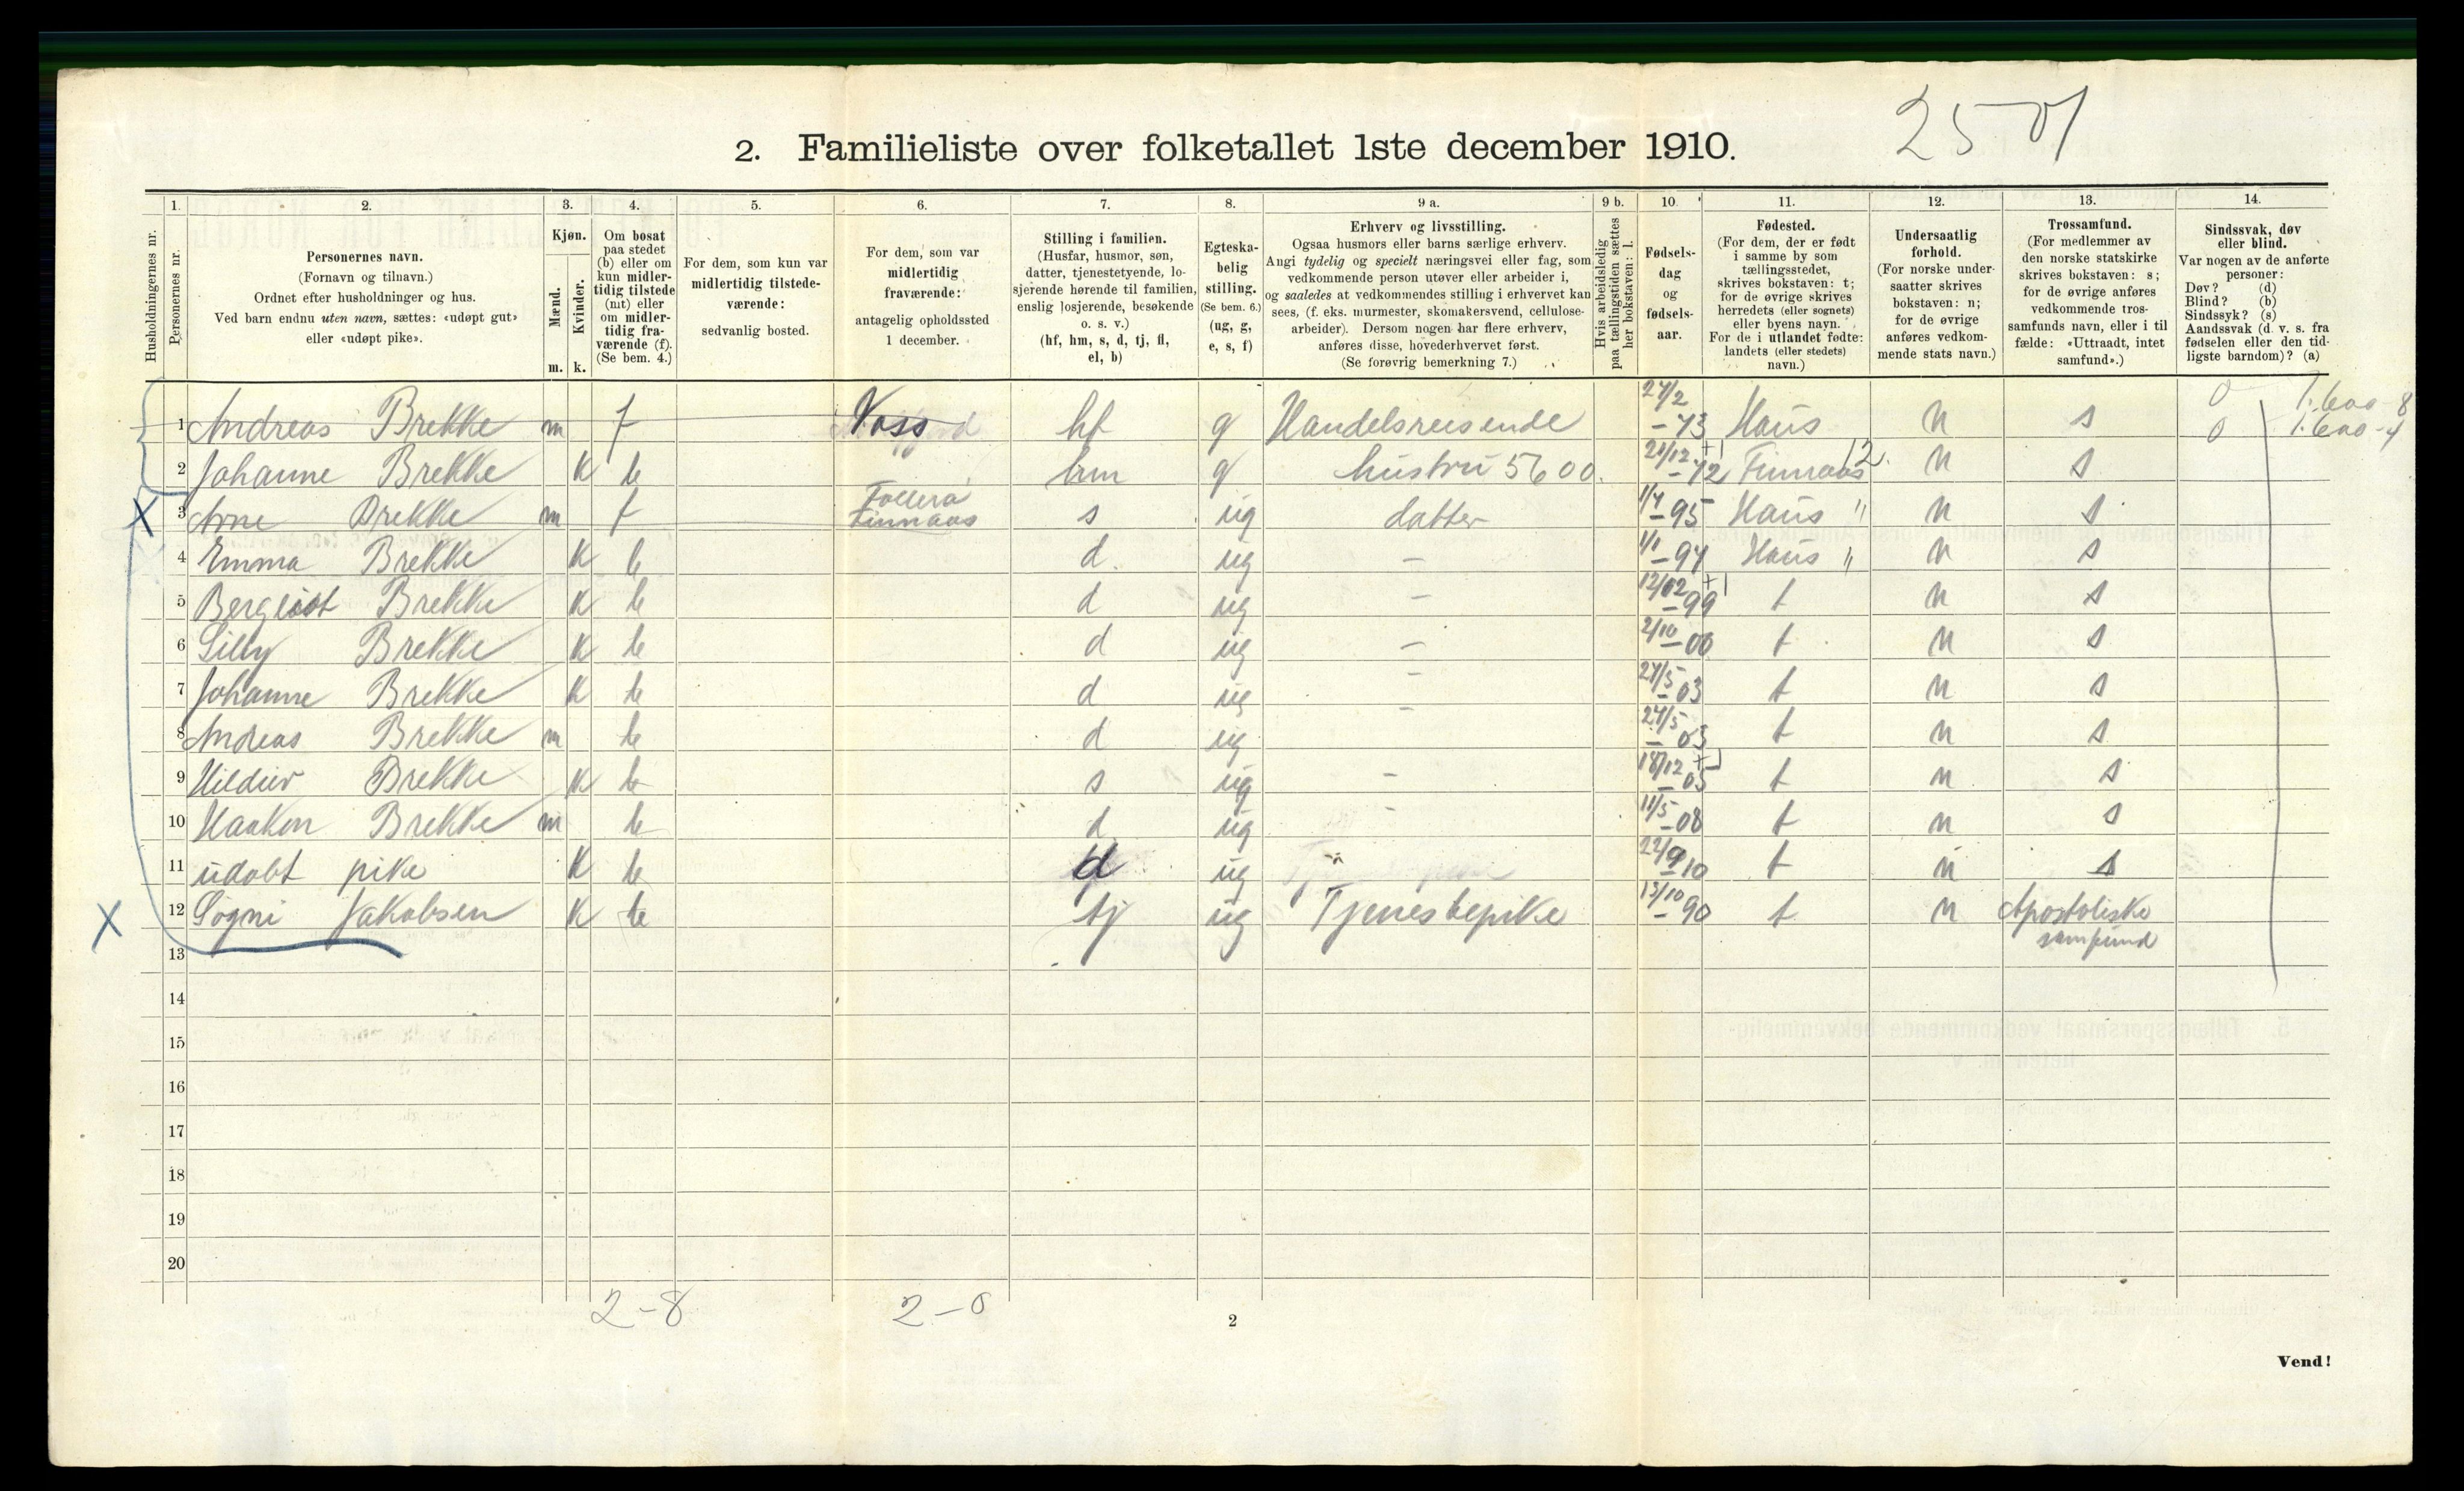 25 01
2. Familieliste over folketallet 1ste december 1910.
Husholdningernes nr.
1.
Personernes nr.
2.
Personernes navn.
(Fornavn og tilnavn.)
Ordnet efter husholdninger og hus.
Ved barn endnu uten navn, sættes: «udøpt gut»
eller «udøpt pike».
3.
Kjøn.
Mænd.
Kvinder.
m. k.
4.
Om bosat
paa stedet
(b) eller om
kun midler-
tidig tilstede
(mt) eller
om midler-
tidig fra-
værende (f).
(Se bem. 4.)
5.
For dem, som kun var
midlertidig tilstede-
værende:
sedvanlig bosted.
6.
For dem, som var
midlertidig
fraværende:
antagelig opholdssted
1 december.
7.
Stilling i familien.
(Husfar, husmor, søn,
datter, tjenestetyende, lo-
sjerende hørende til familien,
enslig losjerende, besøkende
o. s. v.)
(hf, hm, s, d, tj, fl,
el, b)
8.
Egteska-
belig
stilling.
(Se bem. 6.)
(ug, g,
e, s, f)
9 a.
Erhverv og livsstilling.
Ogsaa husmors eller barns særlige erhverv.
Angi tydelig og specielt næringsvei eller fag, som
vedkommende person utøver eller arbeider i,
og saaledes at vedkommendes stilling i erhvervet kan
sees, (f. eks. murmester, skomakersvend, cellulose-
arbeider). Dersom nogen har flere erhverv,
anføres disse, hovederhvervet først.
(Se forøvrig bemerkning 7.)
9 b.
Hvis arbeidsledig
paa tællingstiden sættes
her bokstaven: l.
10.
Fødsels-
dag
og
fødsels-
aar.
11.
Fødested.
(For dem, der er født
i samme by som
tællingsstedet,
skrives bokstaven: t;
for de øvrige skrives
herredets (eller sognets)
eller byens navn.
For de i utlandet fødte:
landets (eller stedets)
navn.)
12.
Undersaatlig
forhold.
(For norske under-
saatter skrives
bokstaven: n;
for de øvrige
anføres vedkom-
mende stats navn.)
13.
Trossamfund.
(For medlemmer av
den norske statskirke
skrives bokstaven: s;
for de øvrige anføres
vedkommende tros-
samfunds navn, eller i til
fælde: «Uttraadt, intet
samfund».)
14.
Sindssvak, døv
eller blind.
Var nogen av de anførte
personer:
Døv? (d)
Blind? (b)
Sindssyk? (s)
Aandssvak (d. v. s. fra
fødselen eller den tid-
ligste barndom)? (a)
1 Andreas Brekke m f Voss hf g Handelsreisende 27/2 -73 Haus n s 0
2 Johanne Brekke k b hm g hustru 5600. 21/12 -72 Finnaas 12. n s 0
3 Arne Brekke m f Finnaas s ug datter 1/4 -95 Haus " n s
4 Emma Brekke k b d. ug - 1/1 -94 Haus " n s
5 Bergliot Brekke k b d ug - 12/12 -99 t n s
6 Lilly Brekke k b d ug - 2/10 -00 t n s
7 Johanne Brekke k b d ug - 27/5 -03 t n s
8 Andreas Brekke m b d ug - 27/5 -03 t n s
9 Hildur Brekke k b s ug - 18/12 -05 t n s
10 Haakon Brekke m b d ug - 11/5 -08 t n s
11 udøbt pike k b d ug 22/9 -10 t n s
12 Sogni Jakobsen k b tj ug Tjenestepike 13/10 -90 t n Apostoliske
samfund
13
14
15
16
17
18
19
20
2-8 2-0
2
Vend!